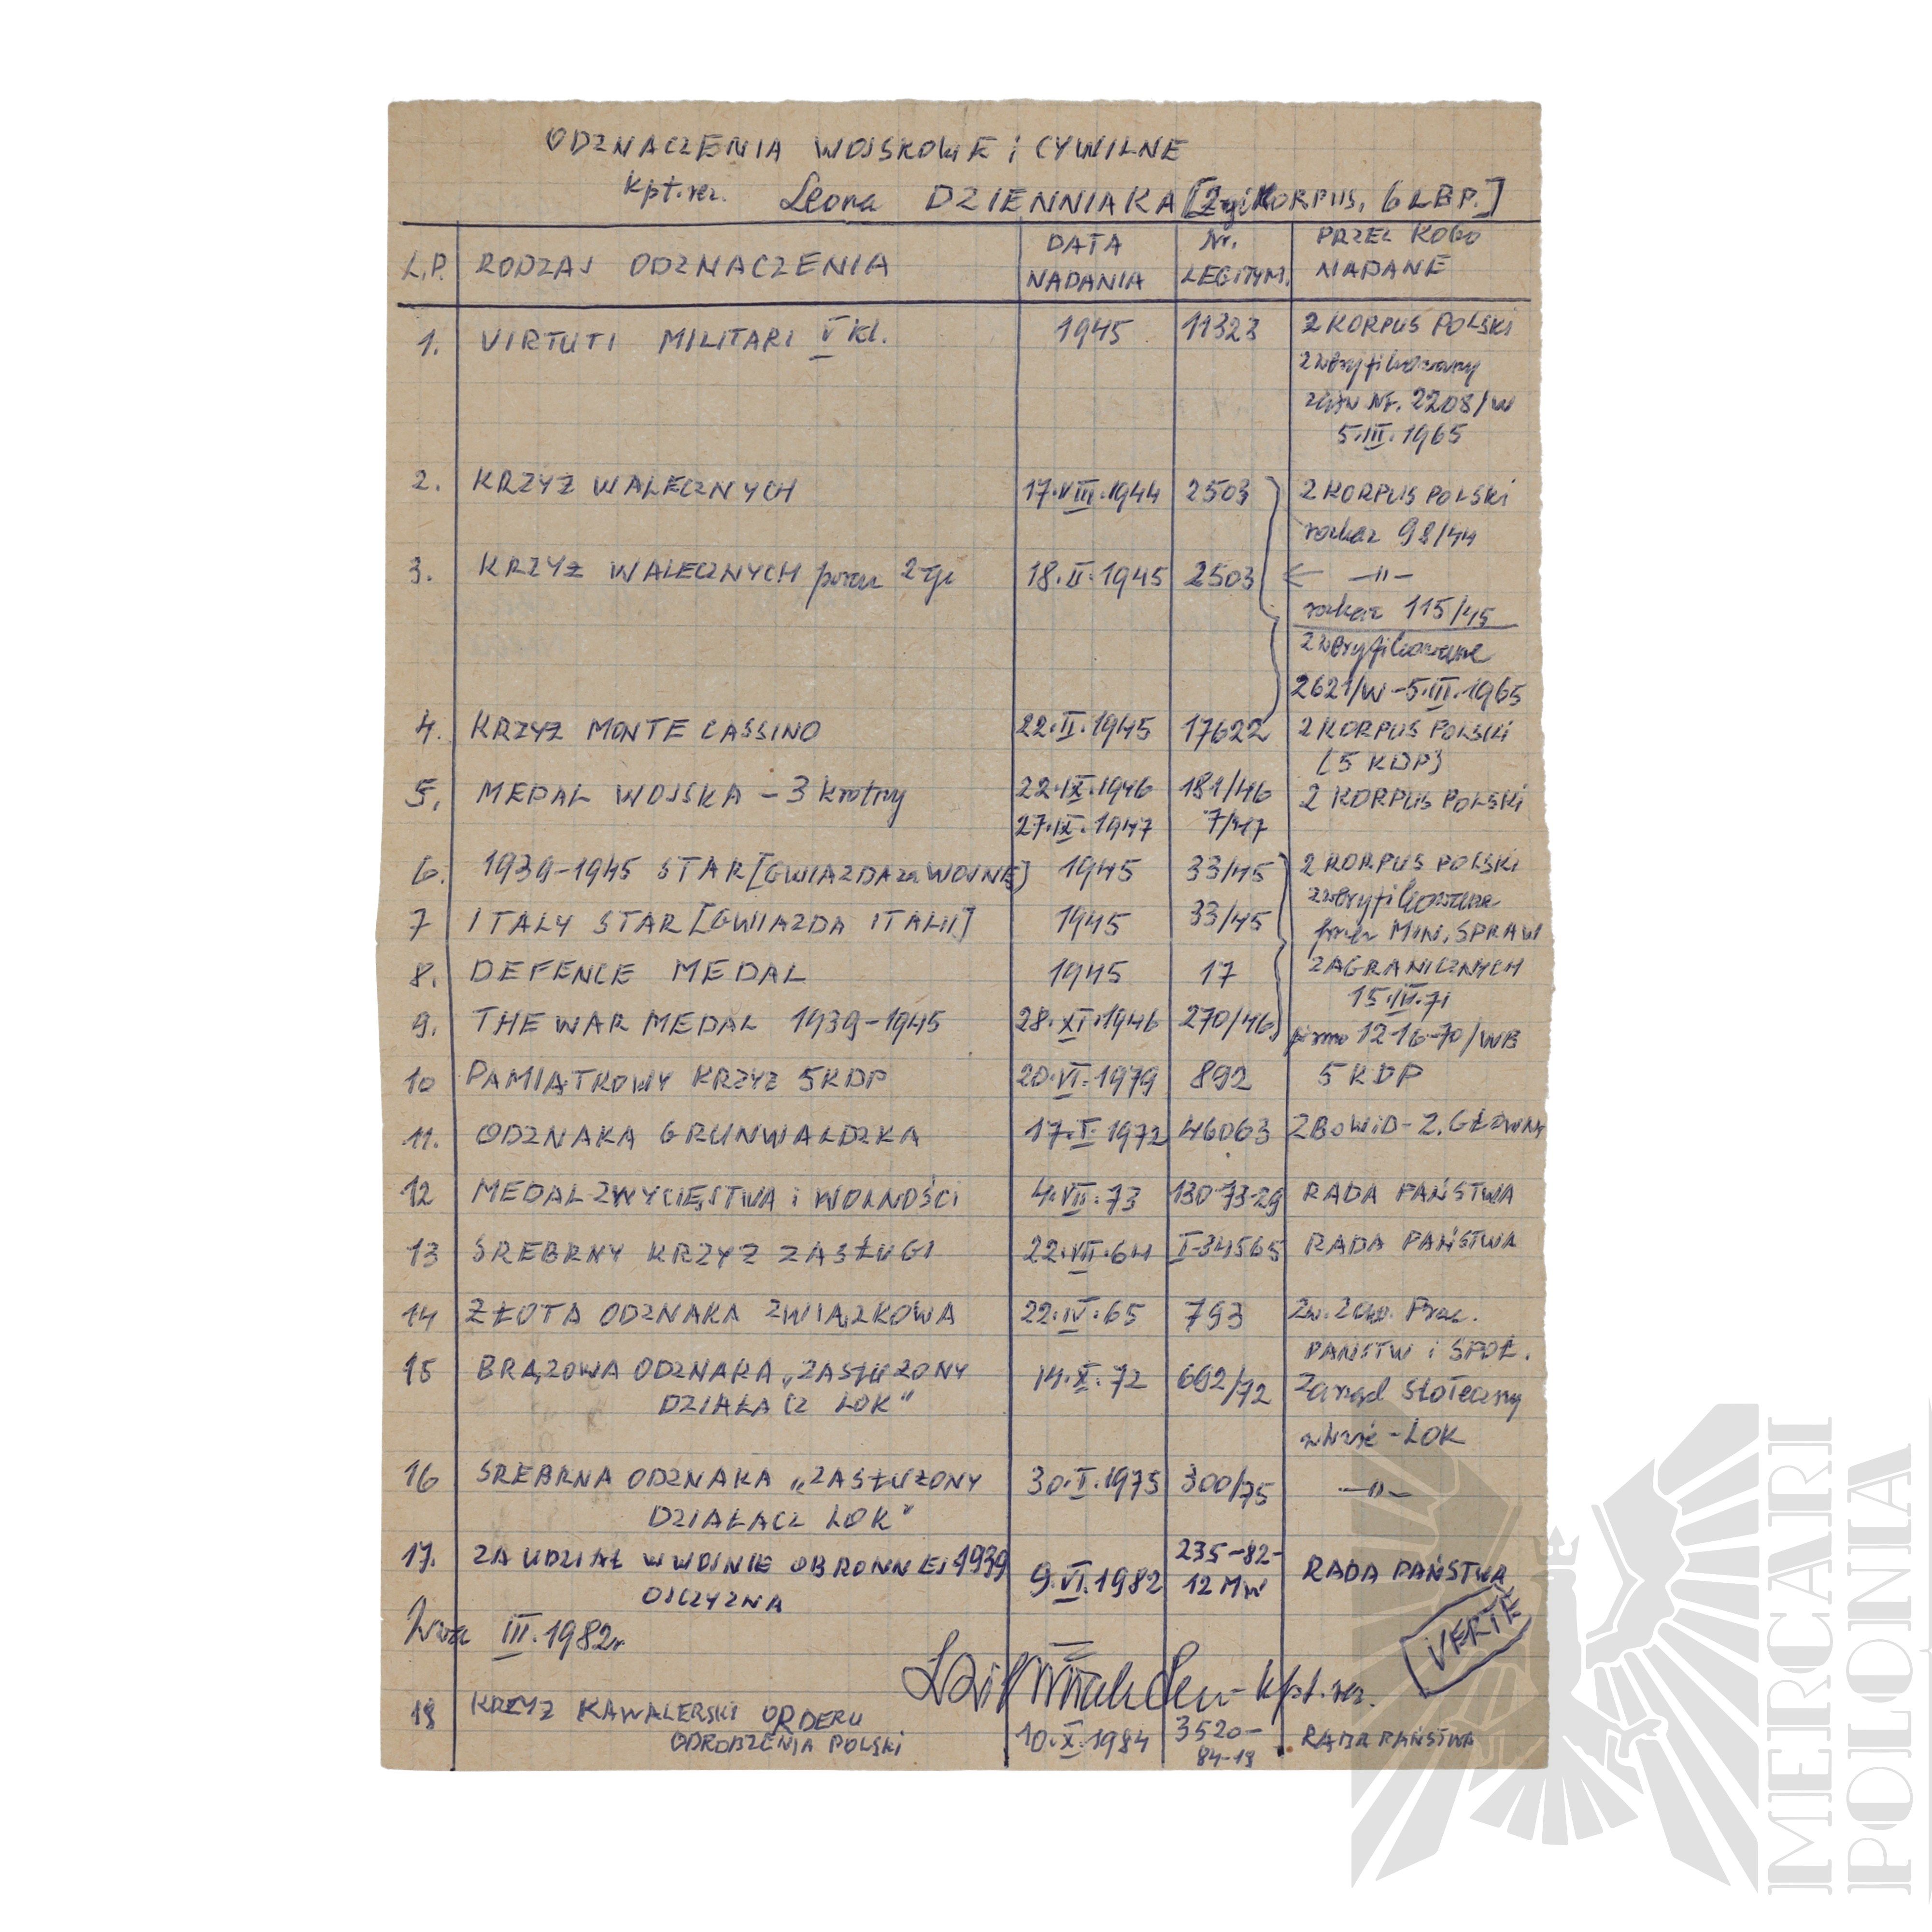 ODZNACZENIA WOJSKOWE i CYWILNE
kpt. rez. Leona DZIENNIAKA [2-gi KORPUS, 6 LBP.]
L.P. RODZAJ ODZNACZENIA DATA NADANIA Nr. LEGITYM. PRZEZ KOGO NADANE
1. VIRTUTI MILITARI V kl. 1945 11323 2 KORPUS POLSKI
zweryfikowany
Nr. 2208/W
5.III.1965
2. KRZYŻ WALECZNYCH 17.VIII.1944 2503 2 KORPUS POLSKI
rozkaz 98/44
3. KRZYŻ WALECZNYCH 2-gi 18.II.1945 2503 ← —"—
rozkaz 115/45
zweryfikowane
2621/W-5.III.1965
4. KRZYŻ MONTE CASSINO 22.II.1945 17622 2 KORPUS POLSKI
(5 KDP)
5. MEDAL WOJSKA - 3 krotny 22.IX.1946 181/46 2 KORPUS POLSKI
27.IX.1947 7/47
6. 1939-1945 STAR [GWIAZDA za WOJNĘ] 1945 33/45 2 KORPUS POLSKI
zweryfikowane
7 ITALY STAR [GWIAZDA ITALII] 1945 33/45 przez MIN. SPRAW
8. DEFENCE MEDAL 1945 17 ZAGRANICZNYCH
15.III.71
9. THE WAR MEDAL 1939-1945 28.XI.1946 270/46 pismo 12-16-70/WB
10 PAMIĄTKOWY KRZYŻ 5KDP 20.VI.1979 892 5 KDP
11. ODZNAKA GRUNWALDZKA 17.I.1972 46063 ZBoWiD - Z. GŁÓWNY
12 MEDAL ZWYCIĘSTWA i WOLNOŚCI 4.VII.73 130-73-29 RADA PAŃSTWA
13 SREBRNY KRZYŻ ZASŁUGI 22.VII.64 I-34565 RADA PAŃSTWA
14 ZŁOTA ODZNAKA ZWIĄZKOWA 22.IV.65 793 Zw. Zaw. Prac.
PAŃSTW i SPOŁ.
15 BRĄZOWA ODZNAKA „ZASŁUŻONY 14.X.72 662/72 Zarząd Stołeczny
DZIAŁACZ LOK"
LOK
16 SREBRNA ODZNAKA „ZASŁUŻONY 30.I.1975 300/75 —"—
DZIAŁACZ LOK"
17. ZA UDZIAŁ W WOJNIE OBRONNEJ 1939 9.VI.1982 235-82-12 MW RADA PAŃSTWA
OJCZYZNA
III.1982r.
VERTE
kpt. rez.
18 KRZYŻ KAWALERSKI ORDERU 10.X.1984 3520-84-18 RADA PAŃSTWA
ODRODZENIA POLSKI
MERCARI
POLONIA